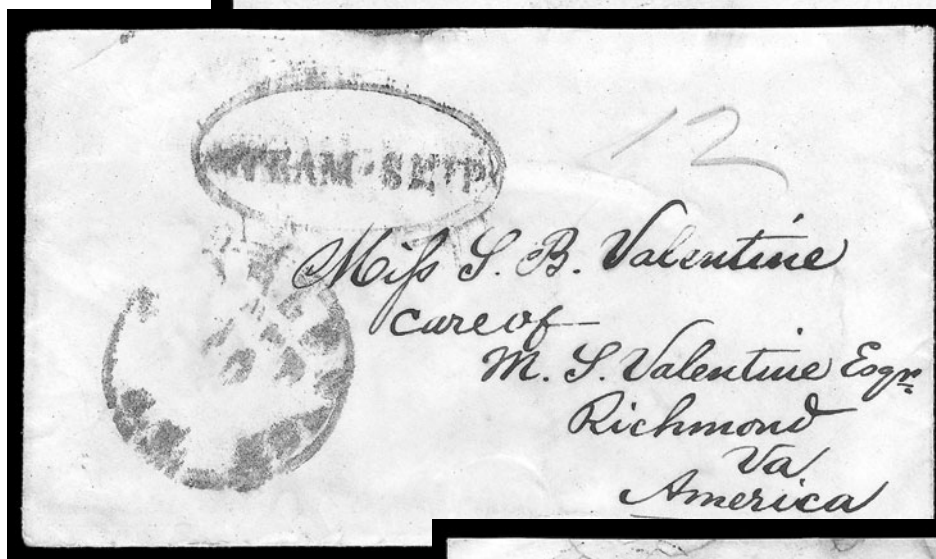 STEAM-SHIP
12
Miss S. B. Valentine
care of
M. S. Valentine Esqr
Richmond
Va
America